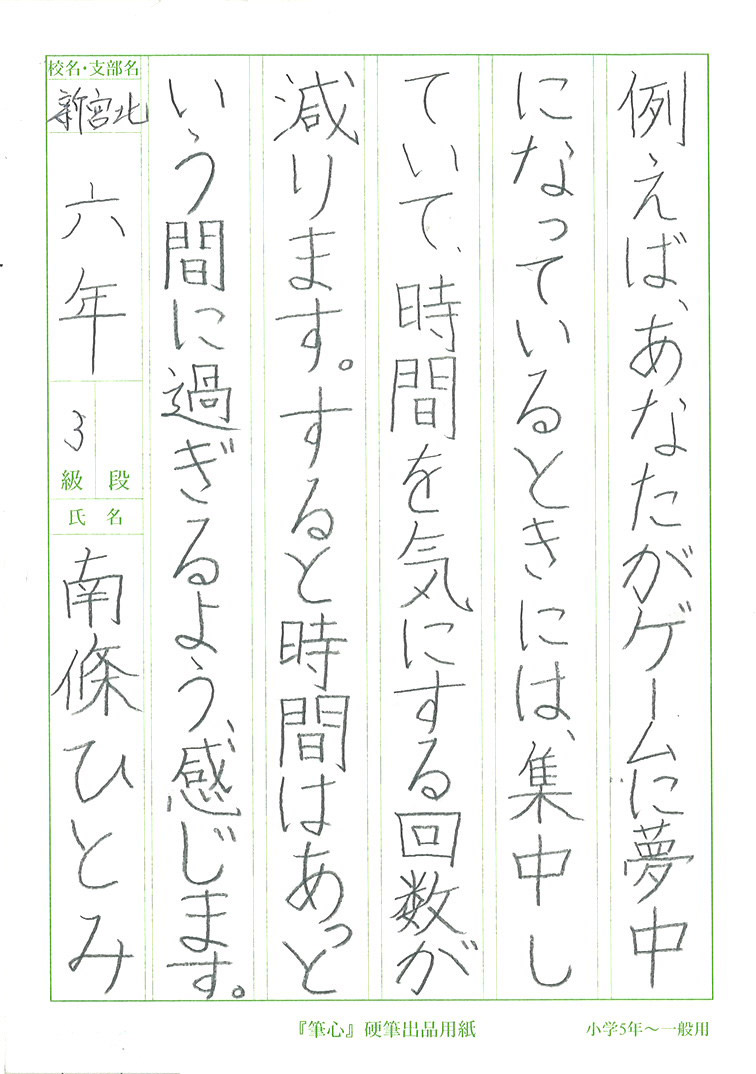 例えば、あなたがゲームに夢中
になっているときには、集中し
ていて、時間を気にする回数が
減ります。すると時間はあっと
いう間に過ぎるよう、感じます。
校名・支部名
新宮北
六年
3
級 段
氏 名
南條ひとみ
『筆心』硬筆出品用紙
小学5年～一般用